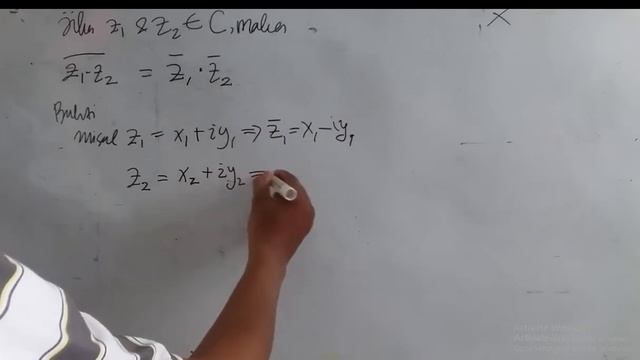 Jika z₁ & z₂ ∈ C, maka
X
\overline{z₁·z₂} = z̄₁ · z̄₂
Bukti
misal z₁ = x₁ + iy₁ ⇒ z̄₁ = x₁ - iy₁
z₂ = x₂ + iy₂ =
Activate Windows